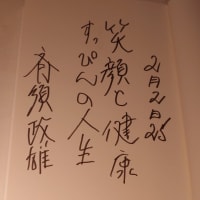 21月21日25
笑顔と健康
すっぴんの人生
斉須政雄